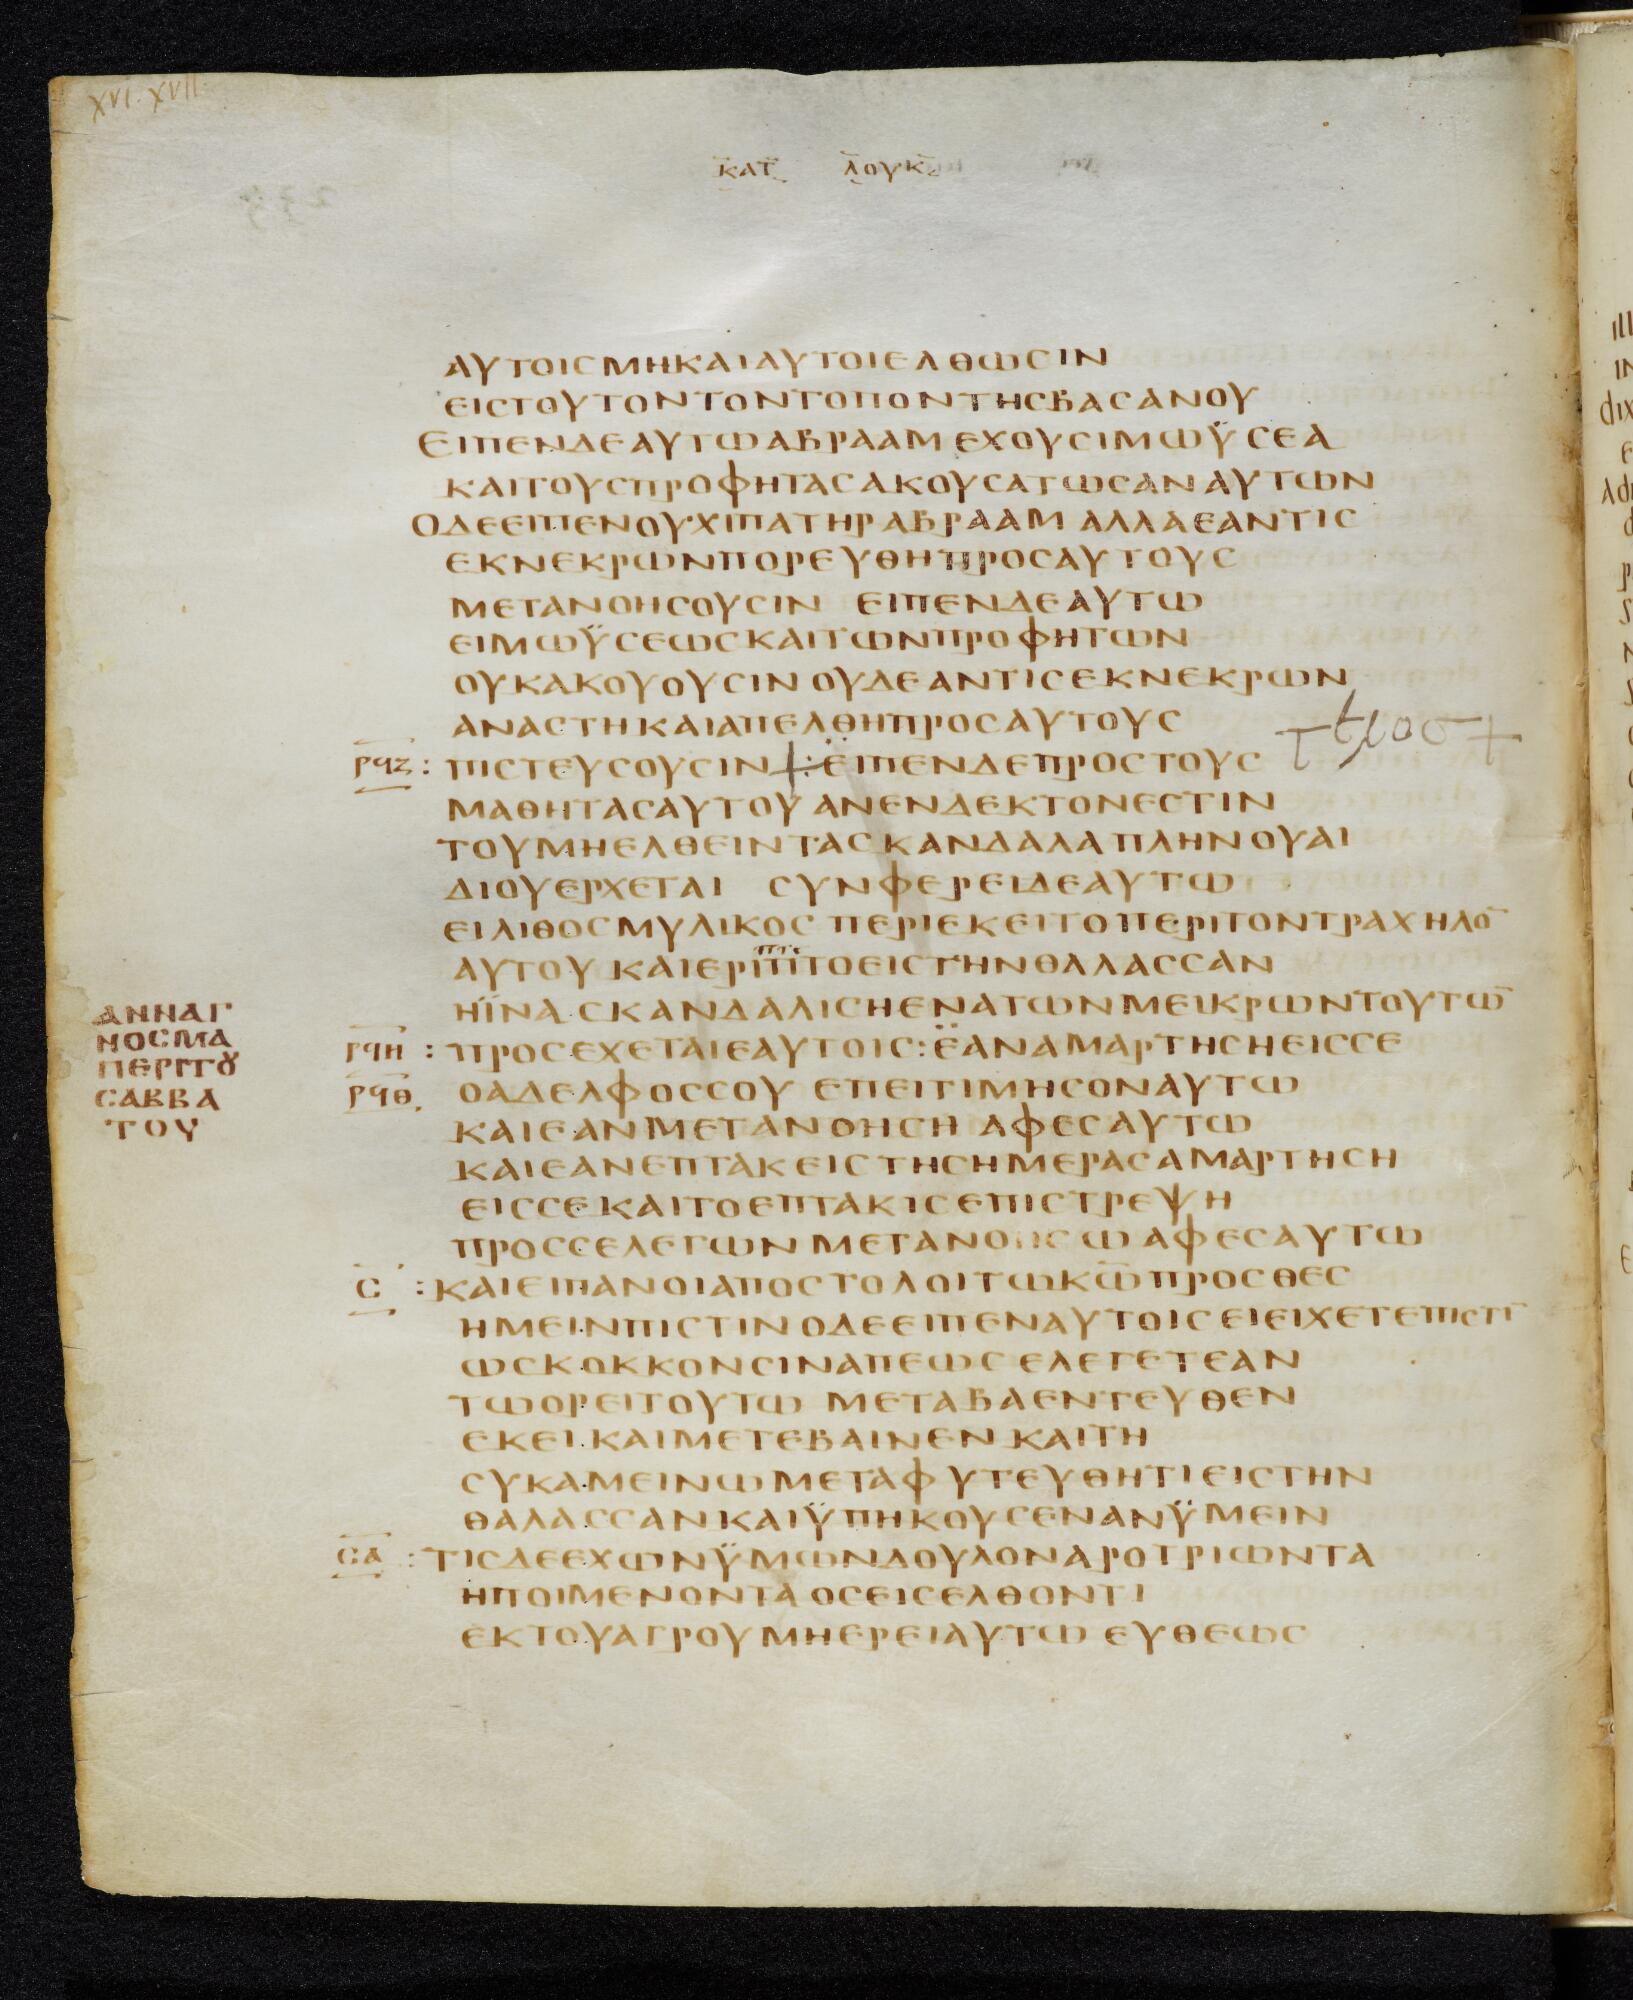 XVI. XVII.
ΚΑΤ ΛΟΥΚ
ΑΥΤΟΙϹΜΗΚΑΙΑΥΤΟΙΕΛΘΩϹΙΝ
ΕΙϹΤΟΥΤΟΝΤΟΝΤΟΠΟΝΤΗϹΒΑϹΑΝΟΥ
ΕΙΠΕΝΔΕΑΥΤΩΑΒΡΑΑΜ ΕΧΟΥϹΙΜΩΫϹΕΑ
ΚΑΙΤΟΥϹΠΡΟΦΗΤΑϹΑΚΟΥϹΑΤΩϹΑΝΑΥΤΩΝ
ΟΔΕΕΙΠΕΝΟΥΧΙΠΑΤΗΡΑΒΡΑΑΜ ΑΛΛΑΕΑΝΤΙϹ
ΕΚΝΕΚΡΩΝΠΟΡΕΥΘΗΠΡΟϹΑΥΤΟΥϹ
ΜΕΤΑΝΟΗϹΟΥϹΙΝ ΕΙΠΕΝΔΕΑΥΤΩ
ΕΙΜΩΫϹΕΩϹΚΑΙΤΩΝΠΡΟΦΗΤΩΝ
ΟΥΚΑΚΟΥΟΥϹΙΝ ΟΥΔΕΑΝΤΙϹΕΚΝΕΚΡΩΝ
ΑΝΑϹΤΗΚΑΙΑΠΕΛΘΗΠΡΟϹΑΥΤΟΥϹ
ΡϤΖ : ΠΙϹΤΕΥϹΟΥϹΙΝ : ΕΙΠΕΝΔΕΠΡΟϹΤΟΥϹ
ΜΑΘΗΤΑϹΑΥΤΟΥ ΑΝΕΝΔΕΚΤΟΝΕϹΤΙΝ
ΤΟΥΜΗΕΛΘΕΙΝΤΑϹΚΑΝΔΑΛΑ ΠΛΗΝΟΥΑΙ
ΔΙΟΥΕΡΧΕΤΑΙ ϹΥΝΦΕΡΕΙΔΕΑΥΤΩ
ΕΙΛΙΘΟϹΜΥΛΙΚΟϹ ΠΕΡΙΕΚΕΙΤΟΠΕΡΙΤΟΝΤΡΑΧΗΛΟ̅
ΑΥΤΟΥ ΚΑΙΕΡΙΠΙΤΟΕΙϹΤΗΝΘΑΛΑϹϹΑΝ
ΗΪΝΑ ϹΚΑΝΔΑΛΙϹΗΕΝΑΤΩΝΜΕΙΚΡΩΝΤΟΥΤΩ̅
ΡϤΗ : ΠΡΟϹΕΧΕΤΑΙΕΑΥΤΟΙϹ : ΕΑΝΑΜΑΡΤΗϹΗΕΙϹϹΕ
ΡϤΘ ΟΑΔΕΛΦΟϹϹΟΥ ΕΠΕΙΤΙΜΗϹΟΝΑΥΤΩ
ΚΑΙΕΑΝΜΕΤΑΝΟΗϹΗ ΑΦΕϹΑΥΤΩ
ΚΑΙΕΑΝΕΠΤΑΚΕΙϹΤΗϹΗΜΕΡΑϹΑΜΑΡΤΗϹΗ
ΕΙϹϹΕΚΑΙΤΟΕΠΤΑΚΙϹΕΠΙϹΤΡΕΨΗ
ΠΡΟϹϹΕΛΕΓΩΝ ΜΕΤΑΝΟΗϹΩ ΑΦΕϹΑΥΤΩ
Ϲ : ΚΑΙΕΙΠΑΝΟΙΑΠΟϹΤΟΛΟΙΤΩΚΩ̅ΠΡΟϹΘΕϹ
ΗΜΕΙΝΠΙϹΤΙΝ ΟΔΕΕΙΠΕΝΑΥΤΟΙϹ ΕΙΕΙΧΕΤΕΠΙϹΤΙ̅
ΩϹΚΟΚΚΟΝϹΙΝΑΠΕΩϹ ΕΛΕΓΕΤΕΑΝ
ΤΩΟΡΕΙΤΟΥΤΩ ΜΕΤΑΒΑΕΝΤΕΥΘΕΝ
ΕΚΕΙ ΚΑΙΜΕΤΕΒΑΙΝΕΝ ΚΑΙΤΗ
ϹΥΚΑΜΕΙΝΩΜΕΤΑΦΥΤΕΥΘΗΤΙΕΙϹΤΗΝ
ΘΑΛΑϹϹΑΝΚΑΙΫΠΗΚΟΥϹΕΝΑΝΫΜΕΙΝ
ϹΑ : ΤΙϹΔΕΕΧΩΝΫΜΩΝΔΟΥΛΟΝΑΡΟΤΡΙΩΝΤΑ
ΗΠΟΙΜΕΝΟΝΤΑ ΟϹΕΙϹΕΛΘΟΝΤΙ
ΕΚΤΟΥΑΓΡΟΥΜΗΕΡΕΙΑΥΤΩ ΕΥΘΕΩϹ
ΑΝΝΑΓ
ΝΟϹΜΑ
ΠΕΡΙΤȢ
ϹΑΒΒΑ
ΤΟΥ